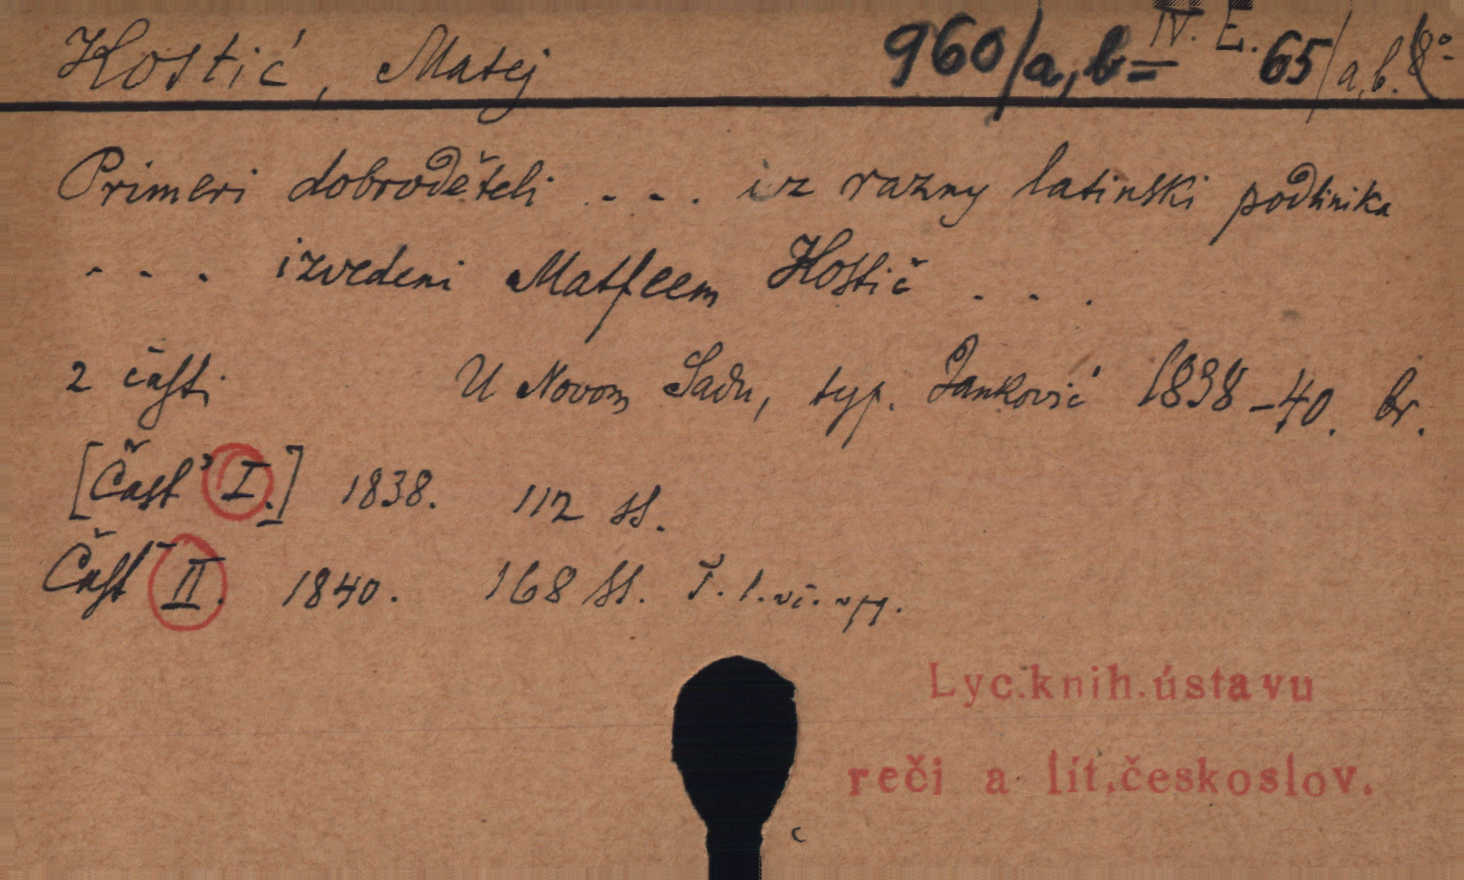 Kostić, Matej 960/a,b= IV. E. 65/a,b. (8°
Primeri dobroděteli ... iz razny latinski podlinika
... izvedeni Matfeem Kostič ...
2 časti U Novom Sadu, typ. Janković 1838-40. br.
[Časť I.] 1838. 112 ss.
Časť II. 1840. 168 ss.
Lyc.knih.ústavu
reči a lit.českoslov.